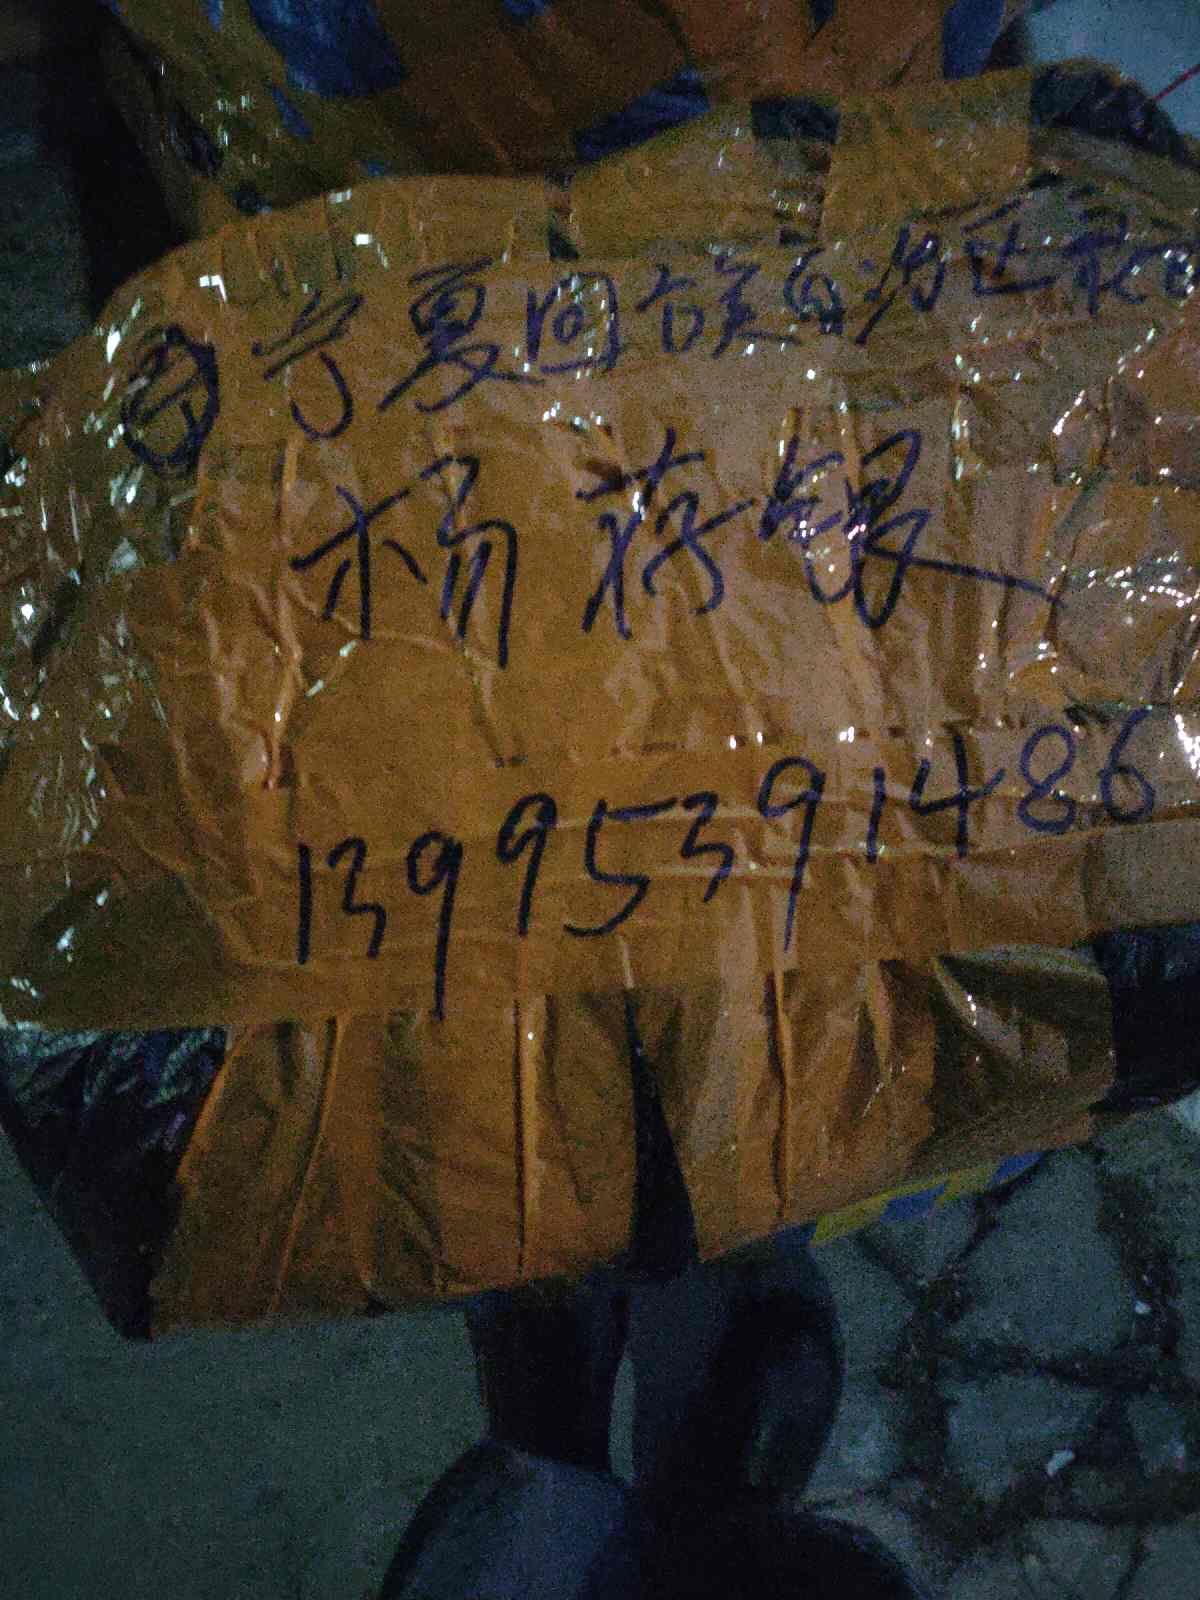 宁夏回族自治区
杨存银
13995391486